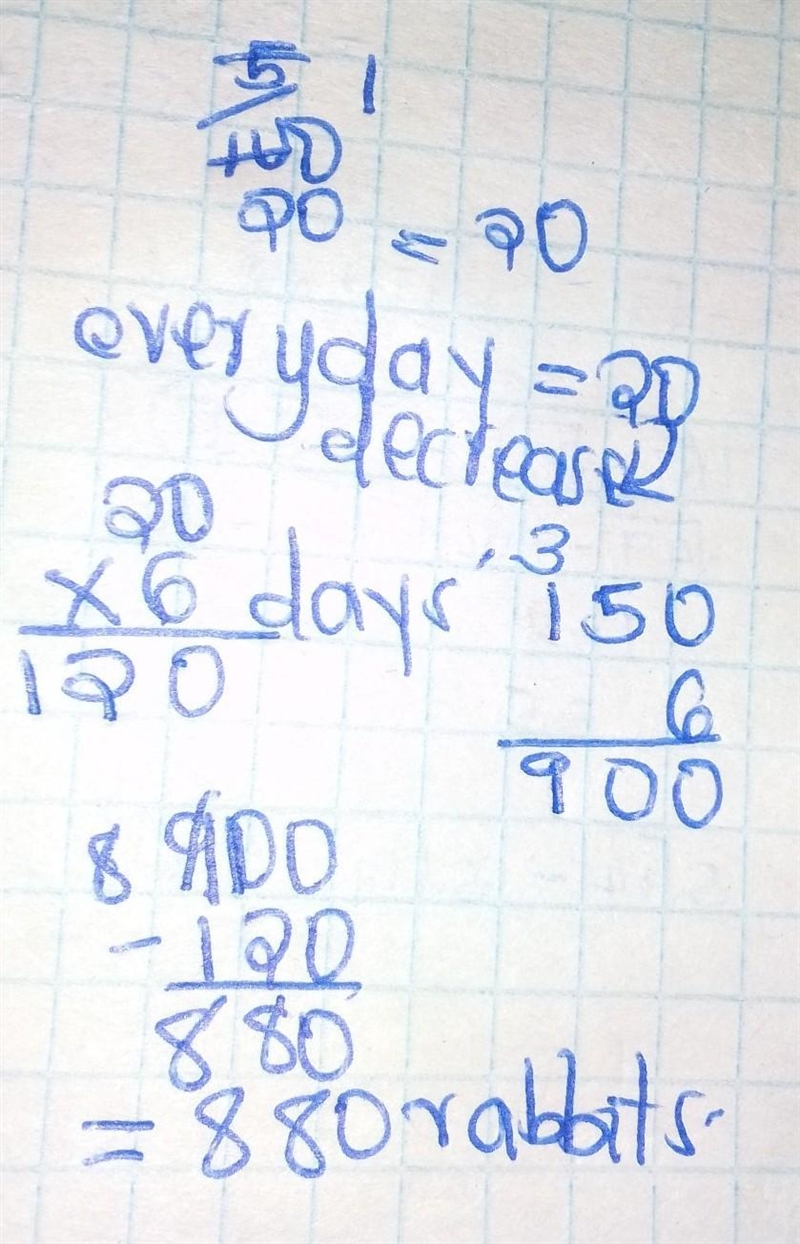 1
20 = 20
everyday = 20
decrease
20
x 6 days
120
3
150
6
900
8 900
- 120
880
= 880 rabbits.